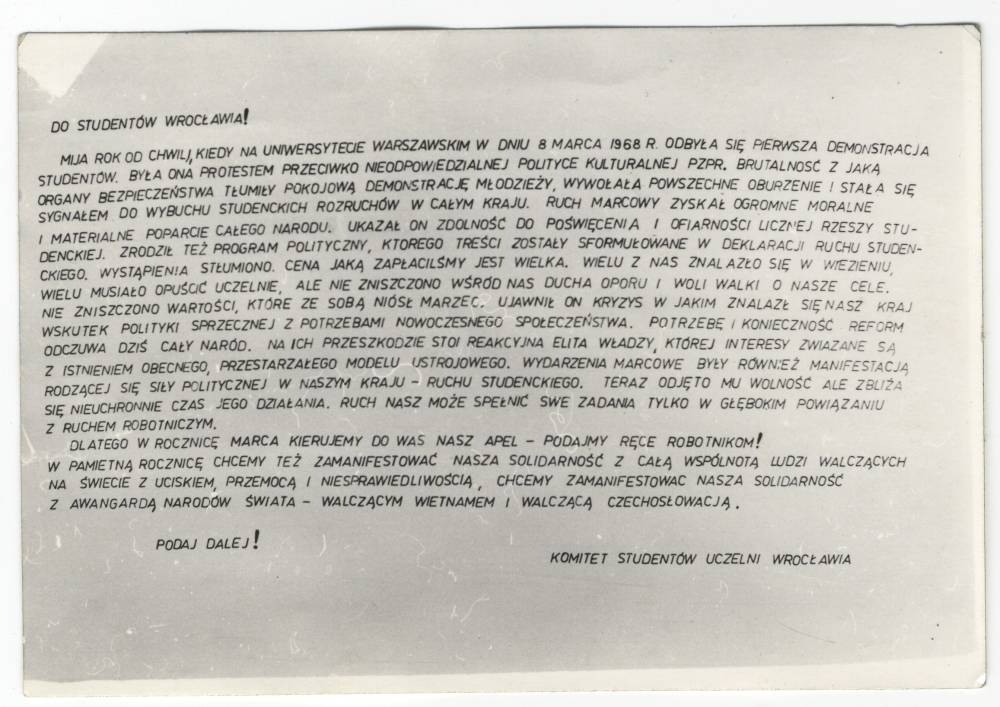 DO STUDENTÓW WROCŁAWIA!
MIJA ROK OD CHWILI, KIEDY NA UNIWERSYTECIE WARSZAWSKIM W DNIU 8 MARCA 1968 R. ODBYŁA SIĘ PIERWSZA DEMONSTRACJA
STUDENTÓW. BYŁA ONA PROTESTEM PRZECIWKO NIEODPOWIEDZIALNEJ POLITYCE KULTURALNEJ PZPR. BRUTALNOŚĆ Z JAKĄ
ORGANY BEZPIECZEŃSTWA TŁUMIŁY POKOJOWĄ DEMONSTRACJĘ MŁODZIEŻY, WYWOŁAŁA POWSZECHNE OBURZENIE I STAŁA SIĘ
SYGNAŁEM DO WYBUCHU STUDENCKICH ROZRUCHÓW W CAŁYM KRAJU. RUCH MARCOWY ZYSKAŁ OGROMNE MORALNE
I MATERIALNE POPARCIE CAŁEGO NARODU. UKAZAŁ ON ZDOLNOŚĆ DO POŚWIĘCENIA I OFIARNOŚCI LICZNEJ RZESZY STU-
DENCKIEJ. ZRODZIŁ TEŻ PROGRAM POLITYCZNY, KTOREGO TREŚCI ZOSTAŁY SFORMUŁOWANE W DEKLARACJI RUCHU STUDEN-
CKIEGO. WYSTĄPIENIA STŁUMIONO. CENA JAKĄ ZAPŁACILŚMY JEST WIELKA. WIELU Z NAS ZNALAZŁO SIĘ W WIEZIENIU,
WIELU MUSIAŁO OPUŚCIĆ UCZELNIE, ALE NIE ZNISZCZONO WŚRÓD NAS DUCHA OPORU I WOLI WALKI O NASZE CELE.
NIE ZNISZCZONO WARTOŚCI, KTÓRE ZE SOBĄ NIÓSŁ MARZEC. UJAWNIŁ ON KRYZYS W JAKIM ZNALAZŁ SIĘ NASZ KRAJ
WSKUTEK POLITYKI SPRZECZNEJ Z POTRZEBAMI NOWOCZESNEGO SPOŁECZEŃSTWA. POTRZEBĘ I KONIECZNOŚĆ REFORM
ODCZUWA DZIŚ CAŁY NARÓD. NA ICH PRZESZKODZIE STOI REAKCYJNA ELITA WŁADZY, KTÓREJ INTERESY ZWIĄZANE SĄ
Z ISTNIENIEM OBECNEGO, PRZESTARZAŁEGO MODELU USTROJOWEGO. WYDARZENIA MARCOWE BYŁY RÓWNIEŻ MANIFESTACJĄ
RODZĄCEJ SIĘ SIŁY POLITYCZNEJ W NASZYM KRAJU – RUCHU STUDENCKIEGO. TERAZ ODJĘTO MU WOLNOŚĆ ALE ZBLIŻA
SIĘ NIEUCHRONNIE CZAS JEGO DZIAŁANIA. RUCH NASZ MOŻE SPEŁNIĆ SWE ZADANIA TYLKO W GŁĘBOKIM POWIĄZANIU
Z RUCHEM ROBOTNICZYM.
DLATEGO W ROCZNICĘ MARCA KIERUJEMY DO WAS NASZ APEL – PODAJMY RĘCE ROBOTNIKOM!
W PAMIETNĄ ROCZNICĘ CHCEMY TEŻ ZAMANIFESTOWAĆ NASZA SOLIDARNOŚĆ Z CAŁĄ WSPÓLNOTĄ LUDZI WALCZĄCYCH
NA ŚWIECIE Z UCISKIEM, PRZEMOCĄ I NIESPRAWIEDLIWOŚCIĄ, CHCEMY ZAMANIFESTOWAC NASZA SOLIDARNOŚĆ
Z AWANGARDĄ NARODÓW ŚWIATA – WALCZĄCYM WIETNAMEM I WALCZĄCĄ CZECHOSŁOWACJĄ.
PODAJ DALEJ!
KOMITET STUDENTÓW UCZELNI WROCŁAWIA